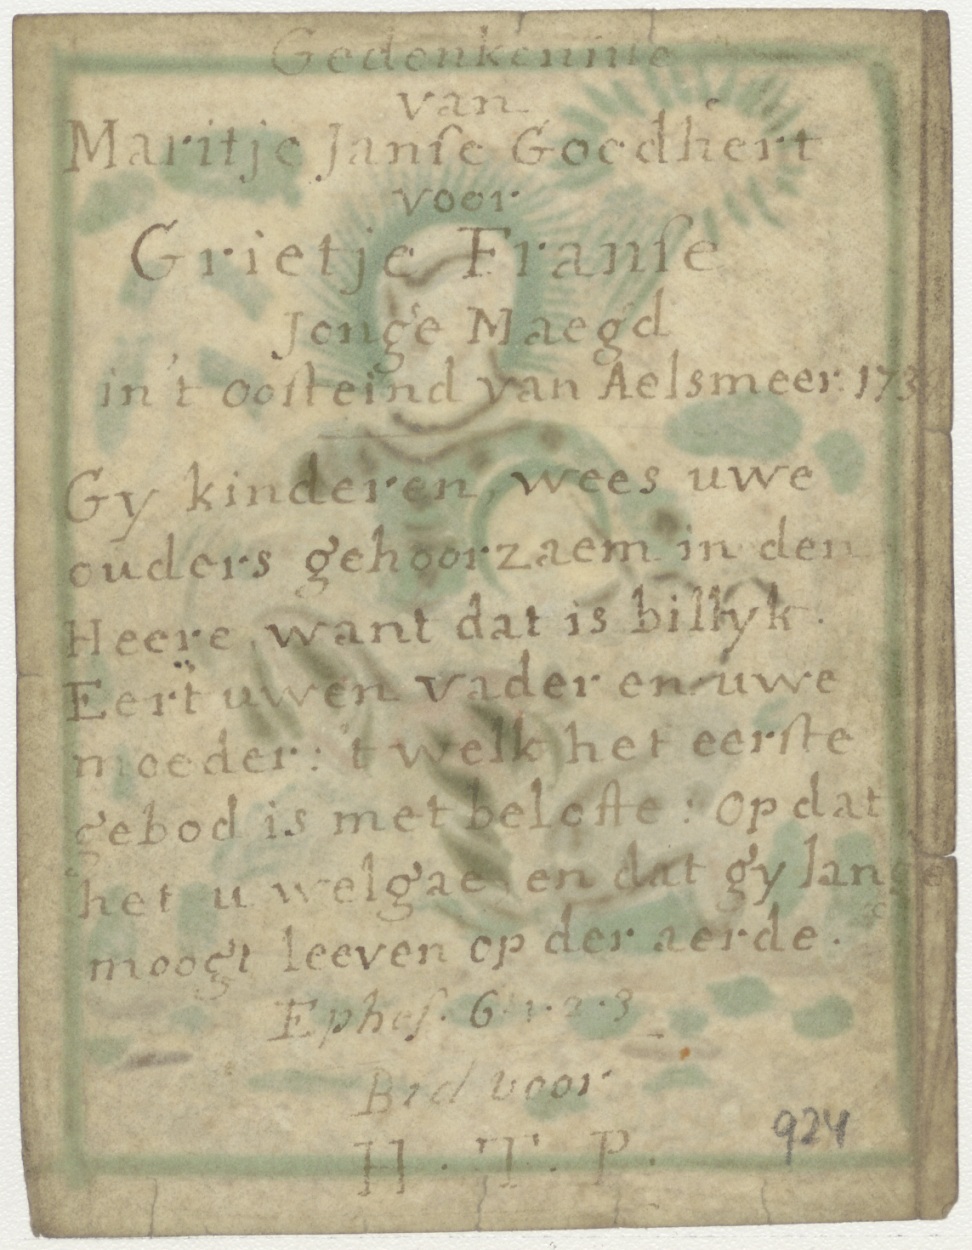 Gedenkenniſe
van
Maritje Janſe Goedhert
voor
Grietje Franſe
Jonge Maegd
in't ooſteind van Aelsmeer. 173
Gy kinderen, wees uwe
ouders gehoorzaem in den
Heere, want dat is billyk.
Eert uwen vader en uwe
moeder: 't welk het eerſte
gebod is met belofte: Op dat
het u welgae, en dat gy lange
moogt leeven op der aerde.
Epheſ. 6. 1. 2. 3
Bid voor
H. T. P.
924